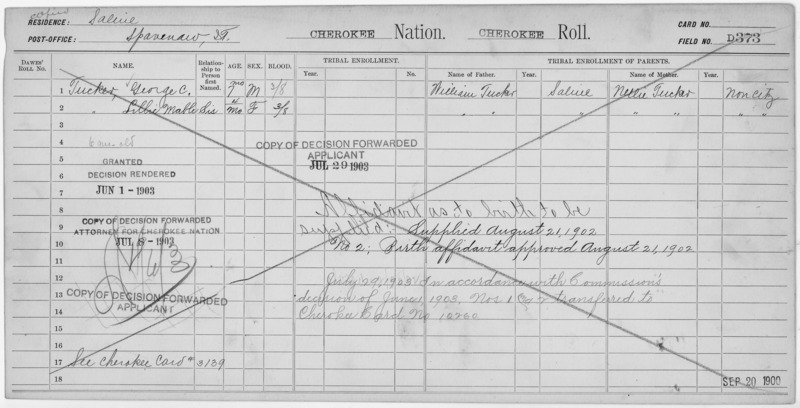 RESIDENCE: Saline
POST-OFFICE: Spavenaw, I.T.
CHEROKEE Nation. CHEROKEE Roll.
CARD NO.
FIELD NO. D373
DAWES' ROLL NO. NAME. Relationship to Person first Named. AGE. SEX. BLOOD. TRIBAL ENROLLMENT. TRIBAL ENROLLMENT OF PARENTS.
Year. No. Name of Father. Year. Name of Mother. Year.
1 Tucker, George C. 7 mo M 3/8 William Tucker Saline Nellie Tucker Non Citz
2 " Lillie Mable sis mo F 3/8 " " " " " " "
3
4 6 mos old
COPY OF DECISION FORWARDED
APPLICANT
JUL 29 1903
5 GRANTED
6 DECISION RENDERED
7 JUN 1 - 1903
8 Affidavit as to birth to be
9 COPY OF DECISION FORWARDED
ATTORNEY FOR CHEROKEE NATION
JUL 8 - 1903
supplied: Supplied August 21, 1902
10 No 2; Birth affidavit approved August 21, 1902
11
12 July 29, 1903 In accordance with Commission's
13 COPY OF DECISION FORWARDED
APPLICANT
decision of June 1, 1903, Nos 1 & 2 transferred to
14 Cherokee Card No 10260
15
16
17 See Cherokee Card # 3139
18
SEP 20 1900